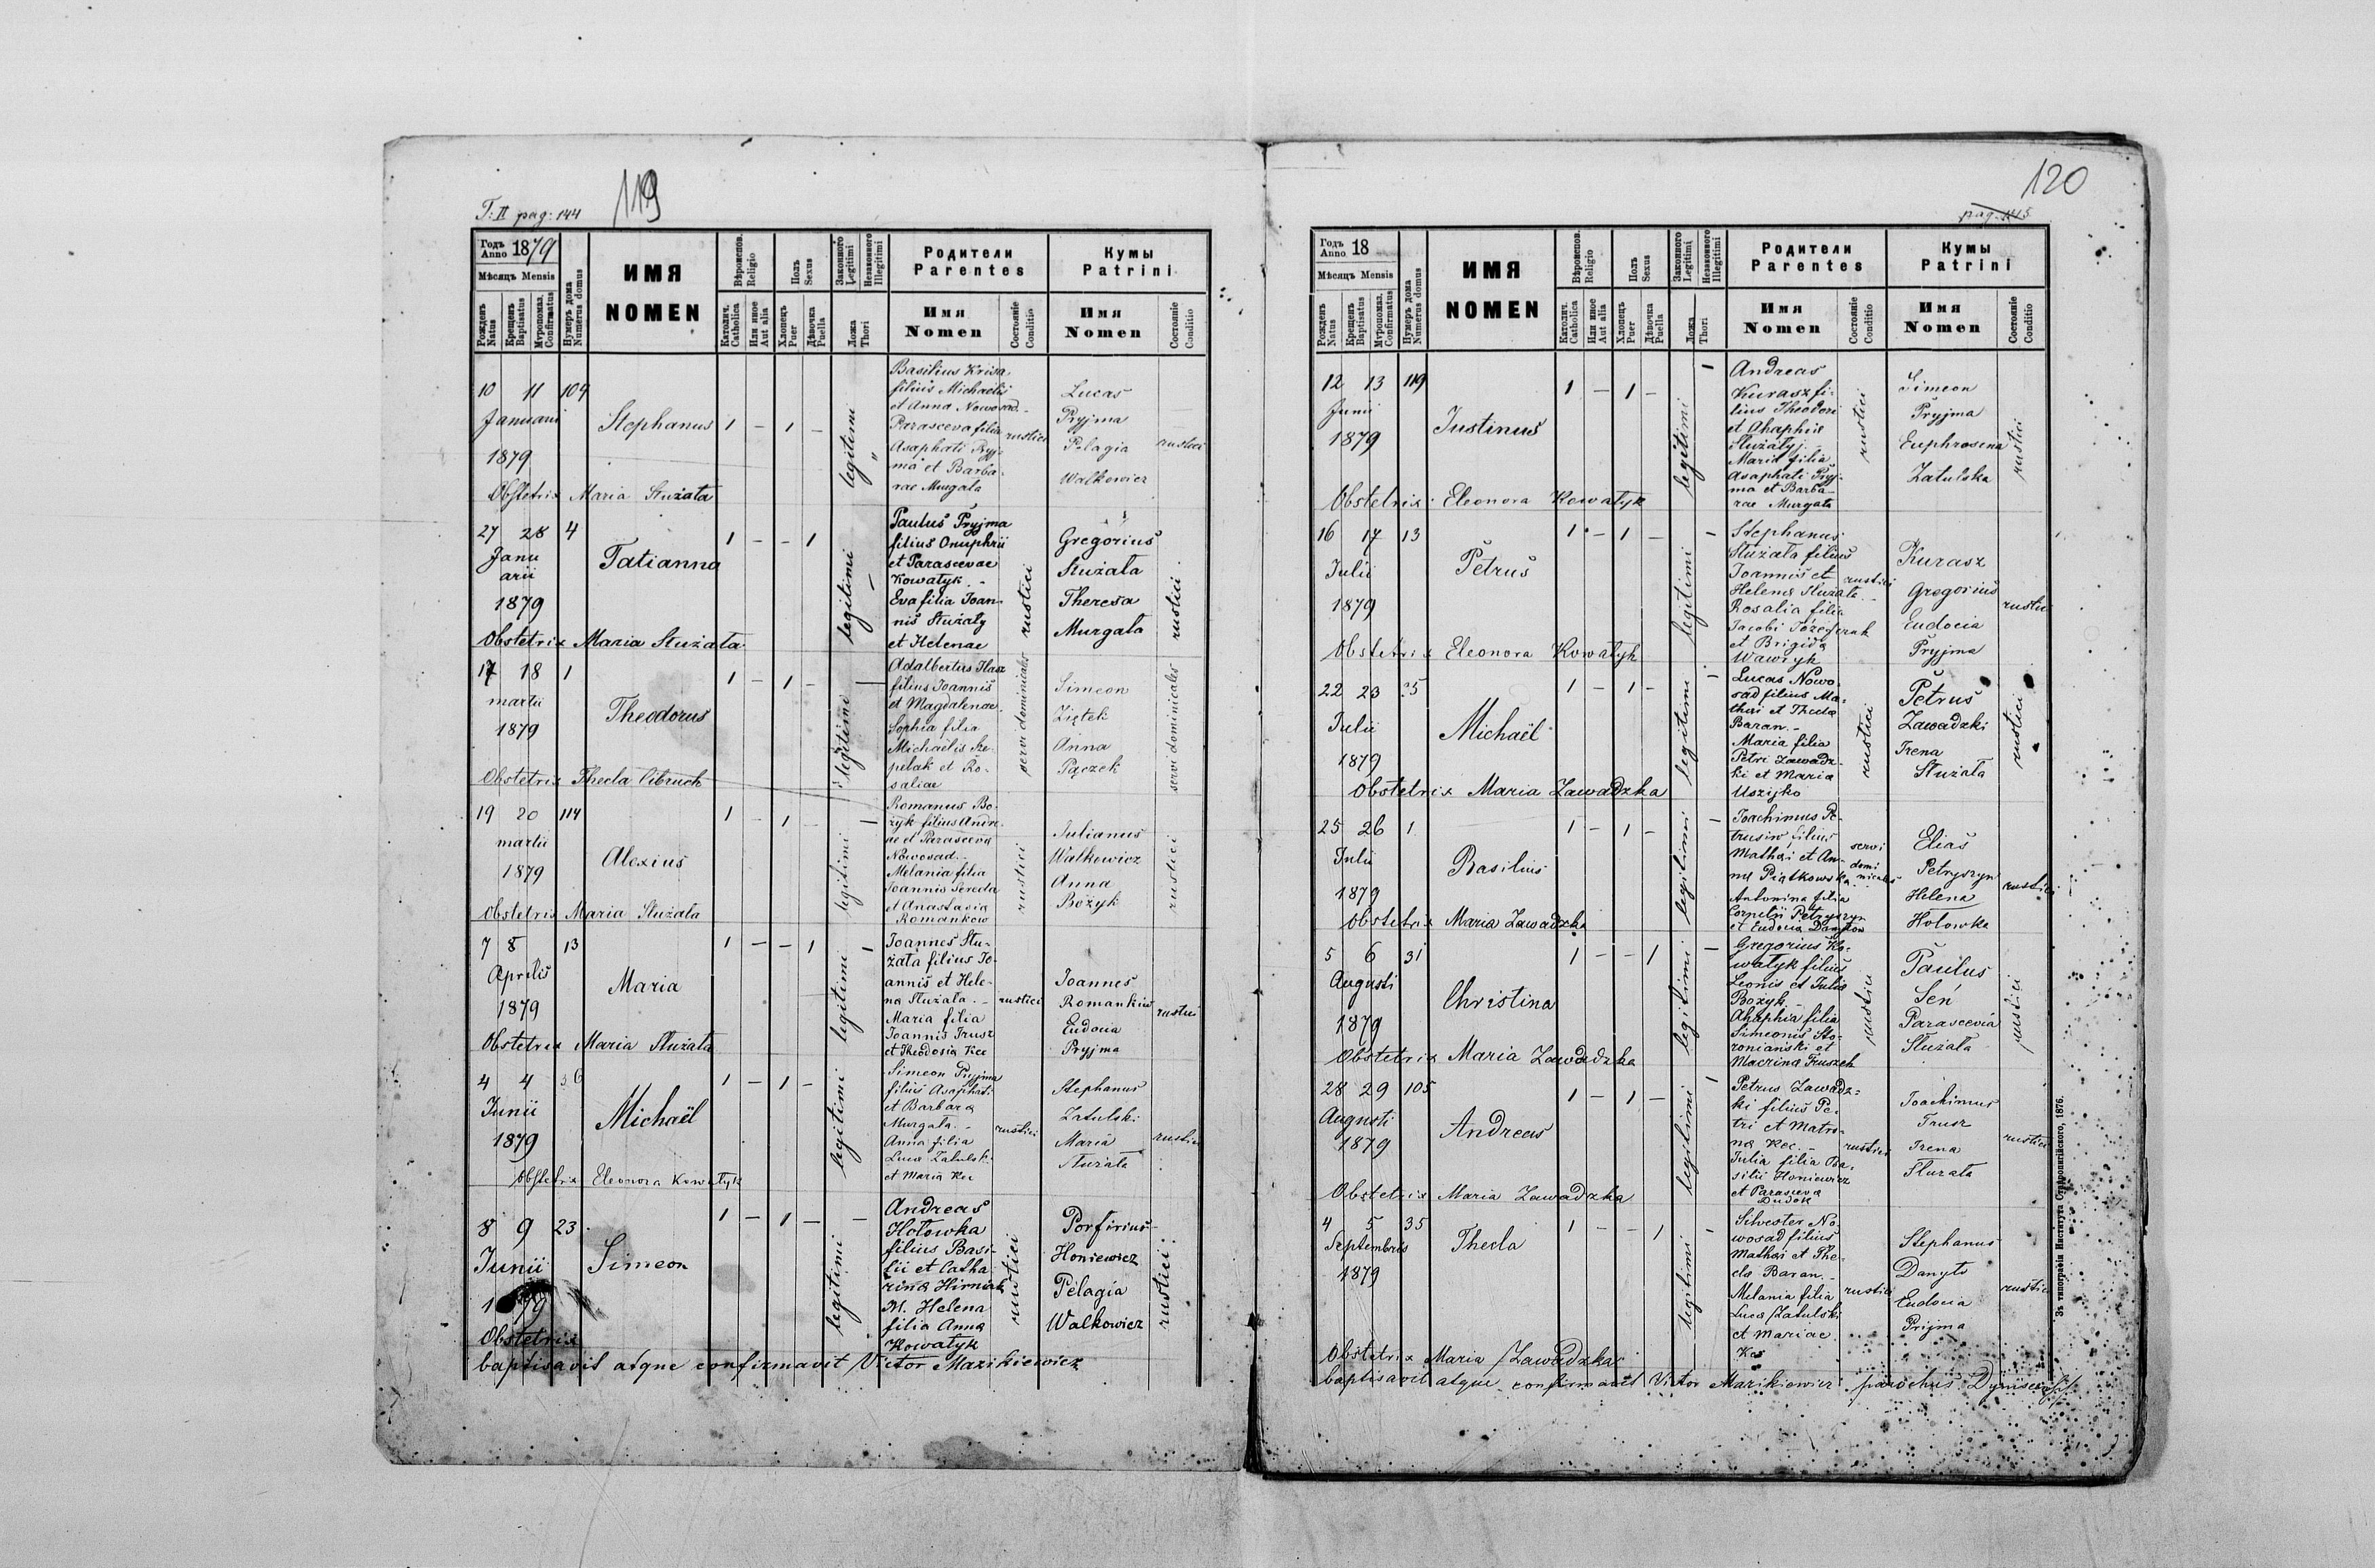 T: II pag: 144
119
Годъ Anno 1879
Мѣсяцъ Mensis
Рожденъ Natus
Крещенъ Baptisatus
Мѵропомаз. Confirmatus
Нумеръ дома Numerus domus
ИМЯ
NOMEN
Вѣроиспов. Religio
Католич. Catholica
Или иное Aut alia
Полъ Sexus
Хлопецъ Puer
Дѣвочка Puella
Законного Legitimi
Незаконного Illegitimi
Ложа Thori
Родители
Parentes
Имя
Nomen
Состояніе Conditio
Кумы
Patrini
Имя
Nomen
Состояніе Conditio
10 11 109
Januarii
1879
Stephanus
1 - 1 -
legitimi
Basilius Krisa
filius Michaelis
et Anna Nowosad. -
Parasceva filia
Asaphati Pryj-
ma et Barba-
rae Murgała
rustici
Lucas
Pryjma
Pelagia
Walkewicz
rustici
Obstetrix Maria Służała
27 28 4
Janu
arii
1879
Tatianna
1 - - 1
legitimi
Paulus Pryjma
filius Onuphrii
et Parascevae
Kowalyk. -
Eva filia Joan-
nis Służały
et Helenae
rustici
Gregorius
Służała
Theresa
Murgała
rustici
Obstetrix Maria Służała
17 18 1
martii
1879
Theodorus
1 - 1 -
legitimi
Adalbertus
filius Joannis
et Magdalenae.
Sophia filia
Michaelis Sze-
pelak et Ro-
saliae
servi dominicales
Simeon
Ziętek
Anna
Pączek
servi dominicales
Obstetrix Thecla Cibruch
19 20 114
martii
1879
Alexius
1 - 1 -
legitimi
Romanus Bo-
żyk filius Andre-
ae et Parasceva
Nowosad. -
Melania filia
Joannis Sereda
et Anastasia
Romankow
rustici
Julianus
Walkewicz
Anna
Bożyk
rustici
Obstetrix Maria Służała
7 8 13
Aprilis
1879
Maria
1 - - 1
legitimi
Joannes Słu-
żała filius Jo-
annis et Hele-
na Służała. -
Maria filia
Joannis Trusz
et Theodosia Kec
rustici
Joannes
Romankiw
Eudocia
Pryjma
rustici
Obstetrix Maria Służała
4 4 56
Junii
1879
Michaël
1 - 1 -
legitimi
Simeon Pryjma
filius Asaphati
et Barbara
Murgała. -
Anna filia
Luca Zatulski
et Maria Kec
rustici
Stephanus
Zatulski
Maria
Służała
rustici
Obstetrix Eleonora Kowalyk
8 9 23
Junii
Simeon
1 - 1 -
legitimi
Andreas
Hołowka
filius Basi-
lii et Catha-
rina Hirniak
M. Helena
filia Anna
Kowalyk
rustici
Porfirius
Honiewicz
Pelagia
Walkowicz
rustici
Obstetrix
baptisavit atque confirmavit Victor Mazikiewicz
120
pag. 145
Годъ Anno 18
Мѣсяцъ Mensis
Рожденъ Natus
Крещенъ Baptisatus
Мѵропомаз. Confirmatus
Нумеръ дома Numerus domus
ИМЯ
NOMEN
Вѣроиспов. Religio
Католич. Catholica
Или иное Aut alia
Полъ Sexus
Хлопецъ Puer
Дѣвочка Puella
Законного Legitimi
Незаконного Illegitimi
Ложа Thori
Родители
Parentes
Имя
Nomen
Состояніе Conditio
Кумы
Patrini
Имя
Nomen
Состояніе Conditio
12 13 119
Junii
1879
Justinus
1 - 1 -
legitimi
Andreas
Kurasz fi-
lius Theodori
et Ahaphia
Służałyj -
Maria filia
Asaphati Pryj-
ma et Barba-
rae Murgała
rustici
Simeon
Pryjma
Euphrosena
Zatulska
rustici
Obstetrix: Eleonora Kowalyk
16 17 13
Julii
1879
Petrus
1 - 1 -
legitimi
Stephanus
Służała filius
Joannis et
Helena Służała -
Rosalia filia
Jacobi Józefczuk
et Brigida
Wawryk
rustici
Kurasz
Gregorius
Eudocia
Pryjma
rustici
Obstetrix Eleonora Kowalyk
22 23 35
Julii
1879
Michaël
1 - 1 -
legitimi
Lucas Nowo-
sad filius Ma-
thei et Thecla
Baran. -
Maria filia
Petri Zawadz-
ki et Maria
Uszijko
rustici
Petrus
Zawadzki
Irena
Służała
rustici
Obstetrix Maria Zawadzka
25 26 1
Julii
1879
Basilius
1 - 1 -
legitimi
Joachimus Pe-
trusiw filius
Mathei et An-
na Piątkowska.
Antonina filia
Cornelii Petryszyn
et Eudocia Danyłow
servi
domi
nicales
Elias
Petryszyn
Helena
Hołowka
rustici
Obstetrix Maria Zawadzka
5 6 31
Augusti
1879
Christina
1 - - 1
legitimi
Gregorius Ko-
walyk filius
Leonis et Julia
Bożyk. -
Ahaphia filia
Simeonis Sto-
roniański et
Macrina Truszek
rustici
Paulus
Seń
Parascevia
Służała
rustici
Obstetrix Maria Zawadzka
28 29 105
Augusti
1879
Andreas
1 - 1 -
legitimi
Petrus Zawadz-
ki filius Pe-
tri et Matro-
na Kec. -
Julia filia Ba-
silii Honiewicz
et Parasceva
Dudek
rustici
Joachimus
Trusz
Irena
Służała
rustici
Obstetrix Maria Zawadzka
4 5 35
Septembris
1879
Thecla
1 - - 1
legitimi
Silvester No-
wosad filius
Mathei et The-
cla Baran. -
Melania filia
Luca Zatulski
et Mariae
Kec
rustici
Stephanus
Danyło
Eudocia
Prijma
rustici
Obstetrix Maria Zawadzka
baptisavit atque confirmavit Victor Mazikiewicz parochus
Зъ типографіи Института Ставропигійского, 1876.